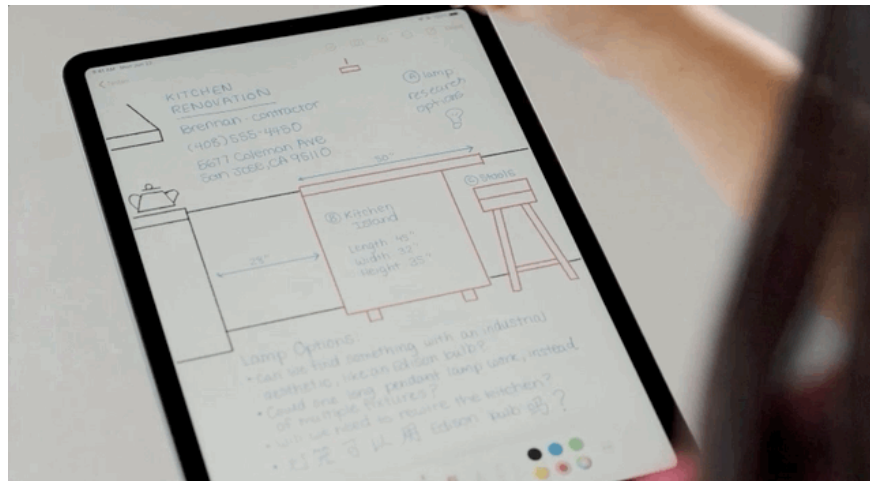 KITCHEN
RENOVATION
Brennan - contractor
(408) 555-4450
5677 Coleman Ave
San Jose, CA 95110
Ⓐ lamp
research
options
50"
Ⓒ Stools
Ⓑ Kitchen
Island
Length 45"
Width 32"
Height 35"
28"
Lamp Options:
• Can we find something with an industrial
aesthetic, like an Edison bulb?
• Could one long pendant lamp work, instead
of multiple fixtures?
• Will we need to rewire the kitchen?
• 可以用 Edison bulb 吗?